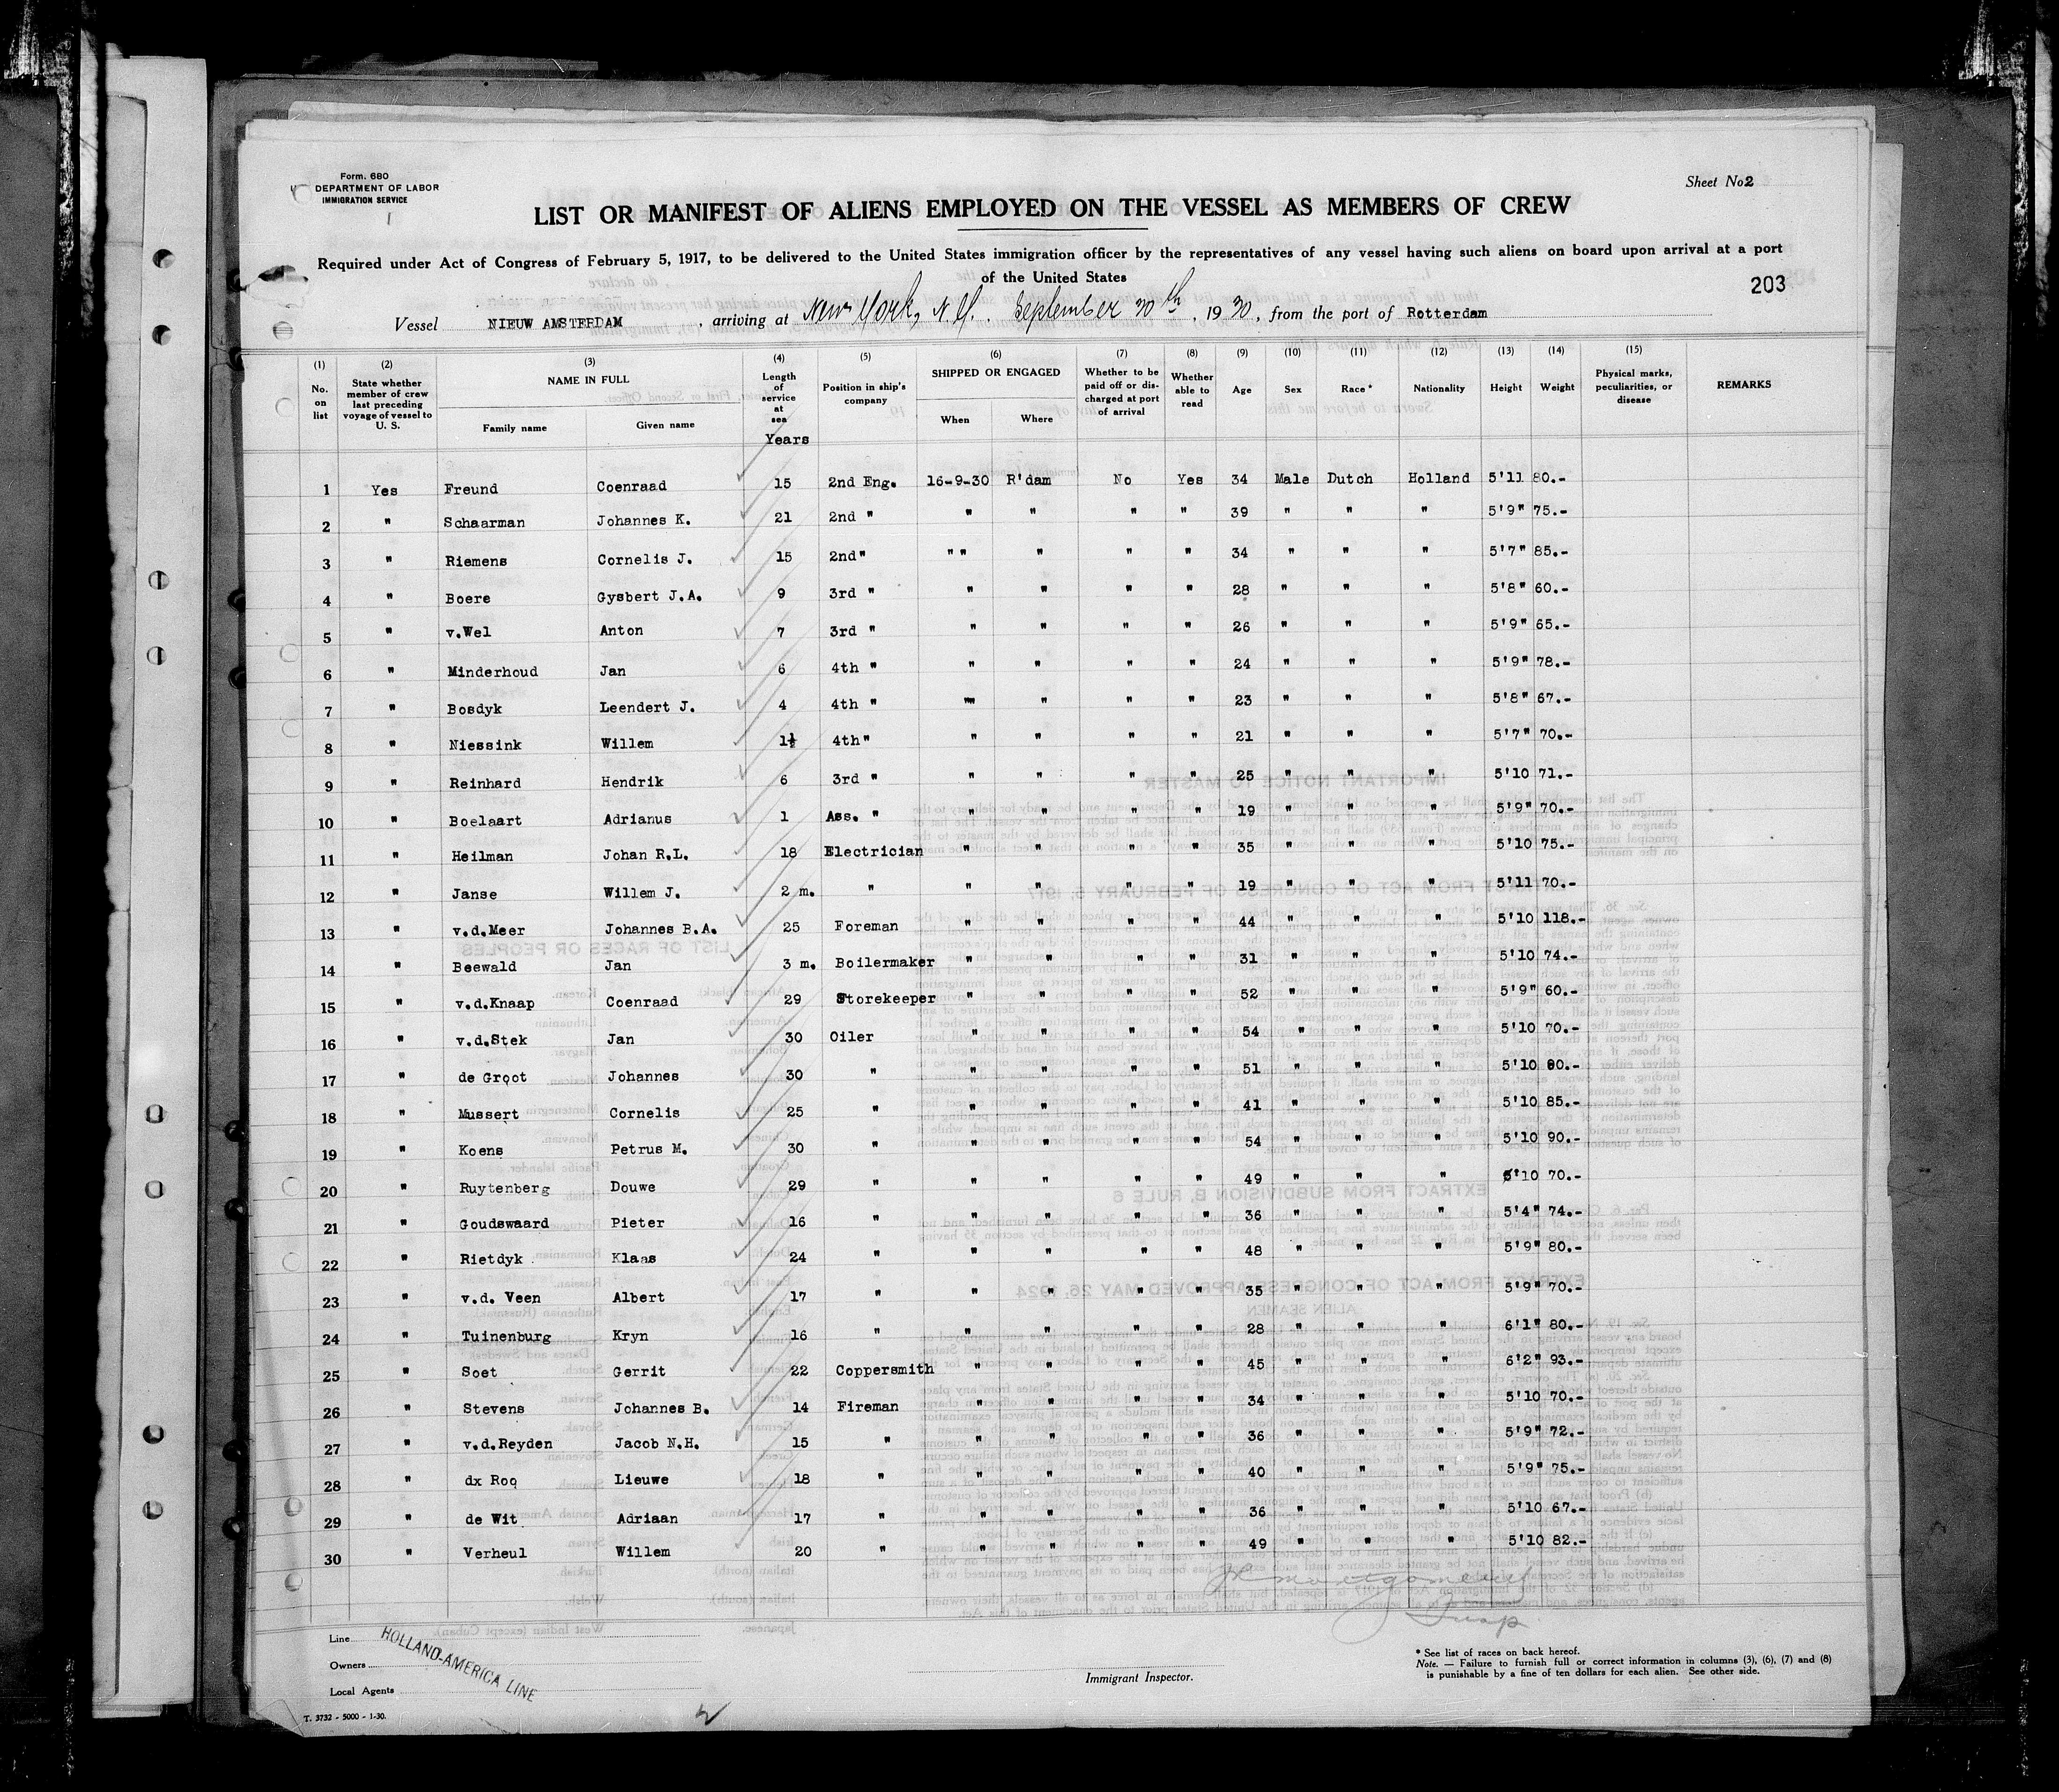 Form. 680
DEPARTMENT OF LABOR
IMMIGRATION SERVICE
Sheet No 2
LIST OR MANIFEST OF ALIENS EMPLOYED ON THE VESSEL AS MEMBERS OF CREW
Required under Act of Congress of February 5, 1917, to be delivered to the United States immigration officer by the representatives of any vessel having such aliens on board upon arrival at a port
of the United States
203
Vessel NIEUW AMSTERDAM, arriving at New York, N.Y. September 30th, 1930, from the port of Rotterdam
(1) No. on list (2) State whether member of crew last preceding voyage of vessel to U. S. (3) NAME IN FULL Family name Given name (4) Length of service at sea Years (5) Position in ship's company (6) SHIPPED OR ENGAGED When Where (7) Whether to be paid off or discharged at port of arrival (8) Whether able to read (9) Age (10) Sex (11) Race * (12) Nationality (13) Height (14) Weight (15) Physical marks, peculiarities, or disease REMARKS
1 Yes Freund Coenraad 15 2nd Eng. 16-9-30 R'dam No Yes 34 Male Dutch Holland 5'11 80.-
2 " Schaarman Johannes K. 21 2nd " " " " " 39 " " " 5'9" 75.-
3 " Riemens Cornelis J. 15 2nd" " " " " " 34 " " " 5'7" 85.-
4 " Boere Gysbert J.A. 9 3rd " " " " " 28 " " " 5'8" 60.-
5 " v.Wel Anton 7 3rd " " " " " 26 " " " 5'9" 65.-
6 " Minderhoud Jan 6 4th " " " " " 24 " " " 5'9" 78.-
7 " Bosdyk Leendert J. 4 4th " " " " " 23 " " " 5'8" 67.-
8 " Niessink Willem 1½ 4th" " " " " 21 " " " 5'7" 70.-
9 " Reinhard Hendrik 6 3rd " " " " " 25 " " " 5'10 71.-
10 " Boelaart Adrianus 1 Ass. " " " " " 19 " " " 5'9" 70.-
11 " Heilman Johan R.L. 18 Electrician " " " " 35 " " " 5'10 75.-
12 " Janse Willem J. 2 m. " " " " " 19 " " " 5'11 70.-
13 " v.d.Meer Johannes B.A. 25 Foreman " " " " 44 " " " 5'10 118.-
14 " Beewald Jan 3 m. Boilermaker " " " " 31 " " " 5'10 74.-
15 " v.d.Knaap Coenraad 29 Storekeeper " " " " 52 " " " 5'9" 60.-
16 " v.d.Stek Jan 30 Oiler " " " " 54 " " " 5'10 70.-
17 " de Groot Johannes 30 " " " " " 51 " " " 5'10 80.-
18 " Mussert Cornelis 25 " " " " " 41 " " " 5'10 85.-
19 " Koens Petrus M. 30 " " " " " 54 " " " 5'10 90.-
20 " Ruytenberg Douwe 29 " " " " " 49 " " " 5'10 70.-
21 " Goudswaard Pieter 16 " " " " " 36 " " " 5'4" 74.-
22 " Rietdyk Klaas 24 " " " " " 48 " " " 5'9" 80.-
23 " v.d. Veen Albert 17 " " " " " 35 " " " 5'9" 70.-
24 " Tuinenburg Kryn 16 " " " " " 28 " " " 6'1" 80.-
25 " Soet Gerrit 22 Coppersmith " " " " 45 " " " 6'2" 93.-
26 " Stevens Johannes B. 14 Fireman " " " " 34 " " " 5'10 70.-
27 " v.d.Reyden Jacob N.H. 15 " " " " " 36 " " " 5'9" 72.-
28 " dx Roo Lieuwe 18 " " " " " 40 " " " 5'9" 75.-
29 " de Wit Adriaan 17 " " " " " 36 " " " 5'10 67.-
30 " Verheul Willem 20 " " " " " 49 " " " 5'10 82.-
Montgomery
Insp
Line
Owners
Local Agents
HOLLAND-AMERICA LINE
Immigrant Inspector.
* See list of races on back hereof.
Note. — Failure to furnish full or correct information in columns (3), (6), (7) and (8)
is punishable by a fine of ten dollars for each alien. See other side.
T. 3732 - 5000 - 1-30.